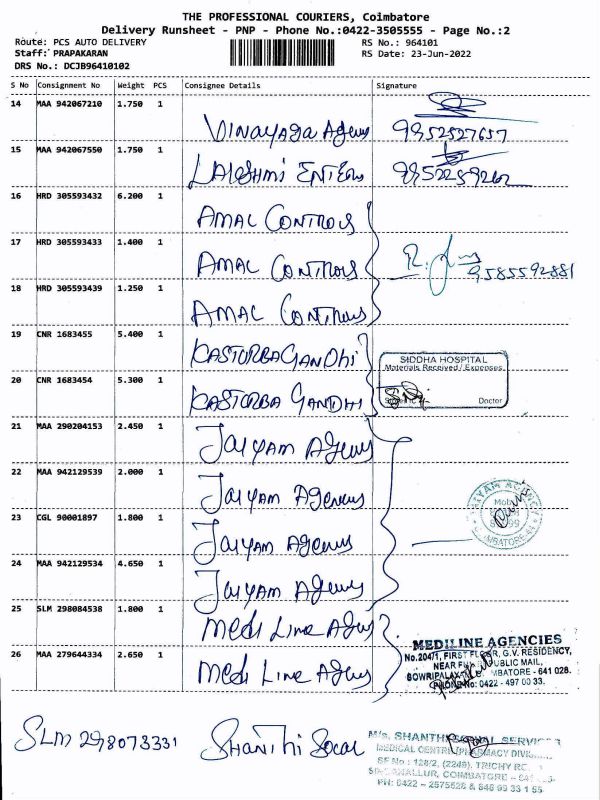 THE PROFESSIONAL COURIERS, Coimbatore
Delivery Runsheet - PNP - Phone No.:0422-3505555 - Page No.:2
Route: PCS AUTO DELIVERY RS No.: 964101
Staff: PRAPAKARAN RS Date: 23-Jun-2022
DRS No.: DCJB96410102
S No Consignment No Weight PCS Consignee Details Signature
14 MAA 942067210 1.750 1
VINAYAGA Agency 9952527657
15 MAA 942067550 1.750 1
LAKSHMI ENTERS 9952259262
16 HRD 305593432 6.200 1
AMAL CONTROLS
17 HRD 305593433 1.400 1
AMAL CONTROLS 9585592881
18 HRD 305593439 1.250 1
AMAL CONTROLS
19 CNR 1683455 5.400 1
KASTURBA GANDHI
SIDDHA HOSPITAL
Materials Received / Expenses
20 CNR 1683454 5.300 1
KASTURBA GANDHI
Doctor
21 MAA 290204153 2.450 1
JAIYAM Agency
22 MAA 942129539 2.000 1
JAIYAM Agencies
23 CGL 90001897 1.800 1
JAIYAM Agency
24 MAA 942129534 4.650 1
JAIYAM Agency
25 SLM 298084538 1.800 1
Medi Line Agency
26 MAA 279644334 2.650 1
Medi Line Agency
MEDILINE AGENCIES
No.204/1, FIRST FLOOR, G.V. RESIDENCY,
PUBLIC MAIL,
COIMBATORE - 641 028.
PHONE No: 0422 - 497 00 33.
SLM 298073331 SHANTHI SOCIAL
M/s. SHANTHI SOCIAL SERVICES
MEDICAL CENTRE (PHARMACY DIVISION)
SF No : 128/2, (2249), TRICHY RO
SINGANALLUR, COIMBATORE - 641
PH: 0422 - 2575528 &